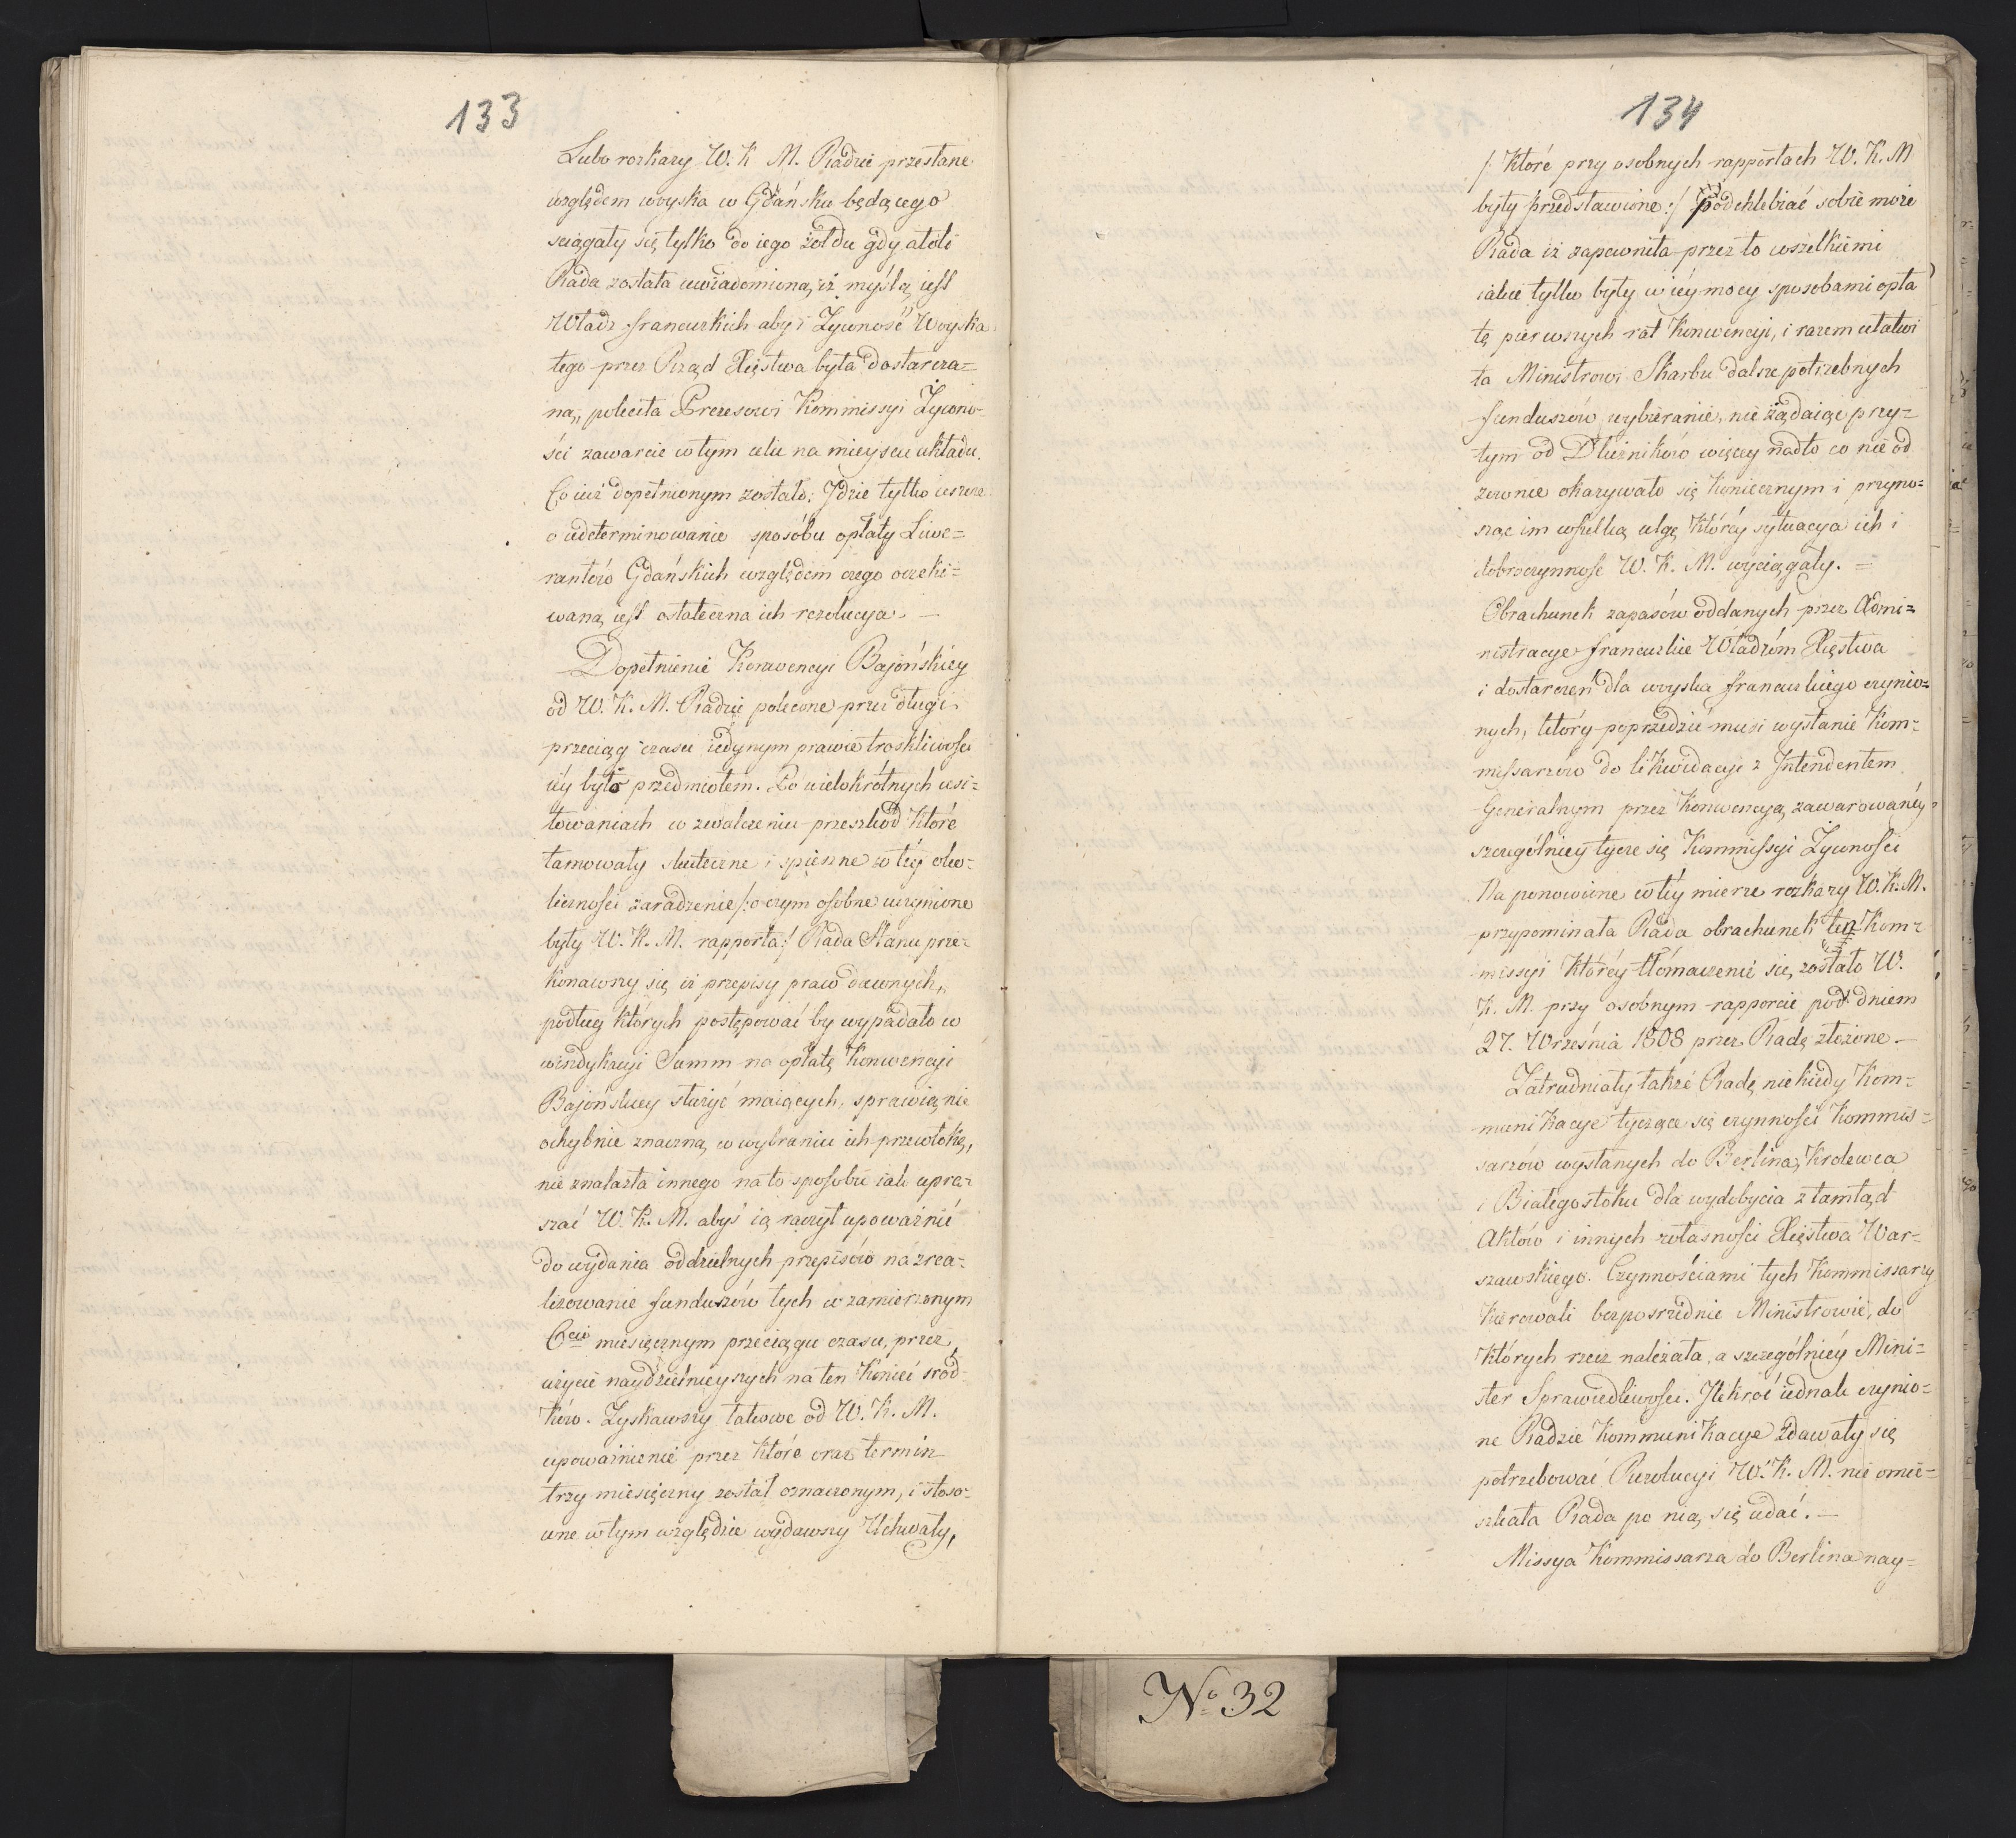 133
Lubo rozkazy W. K M. Radzie przesłane
względem woyska w Gdańsku będącego
sciągały się tylko do iego żołdu gdy atoli
Rada została uwiadomiona, iż myślą iest
Władz francuzkich aby i Żywność Woyska
tego przez Rząd Xięstwa była dostarcza=
na, poleciła Prezesowi Kommissyi Żywno-
ści zawarcie w tym celu na mieyscu układu.
Co iuż dopełnionym zostało; Jdzie tylko ieszcze
o udeterminowanie sposobu opłaty Liwe=
rantów Gdańskich względem czego oczeki=
waną iest ostateczna ich rezolucya. —
Dopełnienie Konwencyi Bajońskiey
od W. K. M. Radzie polecone przez długi
przeciąg czasu iedynym prawie troskliwości
iéy było przedmiotem. Po wielokrótnych usi=
łowaniach w zwalczeniu przeszkod które
tamowały skuteczne i spieszne w téy oko-
liczności zaradzenie /: o czym osobne uczynione
były W. K. M. rapporta :/ Rada Stanu prze=
konawszy się iż przepisy praw dawnych,
podług których postępować by wypadało w
windykacyi Summ na opłatę Konwencyi
Bajońskiey służyć maiących, sprawią nie
ochybnie znaczną w wybraniu ich przewłokę,
nie znalazła innego na to sposobu iak upra=
szać W. K. M. abyś ią raczył upoważnić
do wydania oddzielnych przepisów na zrea-
lizowanie funduszów tych w zamierzonym
6cio miesięcznym przeciągu czasu, przez
użycie naydzielnieyszych na ten koniec srod-
ków. Zyskawszy takowe od W. K. M.
upoważnienie przez które oraz termin
trzy miesięczny został oznaczonym, i stoso-
wne w tym względzie wydawszy Uchwały,
134
/: Które przy osobnych rapportach W. K. M
były przedstawione :/ podchlebiać sobie może
Rada iż zapewniła przez to wszelkiemi
iakie tylko były w iéy mocy sposobami opła
tę pierwszych rat Konwencyi, i razem ułatwi
ła Ministrowi Skarbu dalsze potrzebnych
funduszów wybieranie, nie żądaiąc przy=
tym od Dłużników więcey nadto co nie od
zownie okazywało się koniecznym i przyno=
sząc im wszelką ulgę któréy sytuacya ich i
dobroczynność W. K. M. wyciągały. =
Obrachunek zapasów oddanych przez Admi=
nistracye francuzkie Władzóm Xięstwa
i dostarczeń dla woyska francuzkiego czynio=
nych, który poprzedzić musi wysłanie Kom=
missarzów do likwidacyi z Jntendentem
Generalnym przez Konwencyą zawarowanéy
szczególniey tycze się Kommissyi Żywności
Na ponowione w téy mierze rozkazy W. K. M.
przypominała Rada obrachunek ten Kom=
missyi któréy tłómaczenie się, zostało W.
K. M. przy osobnym rapporcie pod dniem
27. Września 1808 przez Radę złożone. —
Zatrudniały także Radę niekiedy Kom=
munikacye tyczące się czynności Kommis=
sarzów wysłanych do Berlina, Krolewca
i Białegostoku dla wydobycia z tamtąd
Aktów i innych własności Xięstwa War=
szawskiego. Czynnościami tych Kommissarzy
kierowali bezposrzednie Ministrowie, do
których rzecz należała, a szczególniéy Mini=
ster Sprawiedliwości. Jlekroć iednak czynio=
ne Radzie Kommunikacye zdawały się
potrzebować Rezolucyi W. K. M. nie omie=
szkała Rada po nią się udać. —
Missya Kommissarza do Berlina nay=
No 32